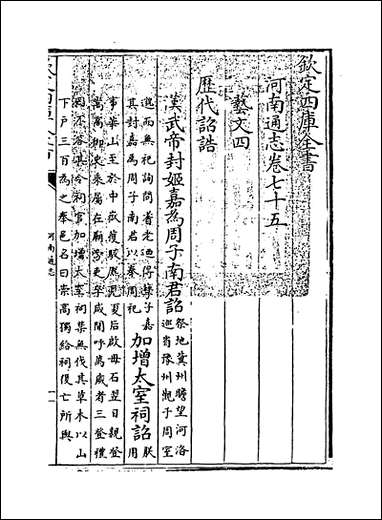 欽定四庫全書
河南通志卷七十五
藝文四
歷代詔誥
漢武帝封姬嘉為周子南君詔 祭地冀州瞻望河洛
巡省豫州觀于周室
邈而無祀詢問耆老迺得孽子嘉
其封嘉為周子南君以奉周祀
加增太室祠詔 朕
用
事華山至於中嶽獲駮麃見夏后啟母石翌日親登
嵩高御史乘屬在廟旁吏卒咸聞呼萬歲者三登禮
罔不答其令祠官加增太室祠禁無伐其草木以山
下戶三百為之奉邑名曰崇高獨給祠復亡所與
河南通志